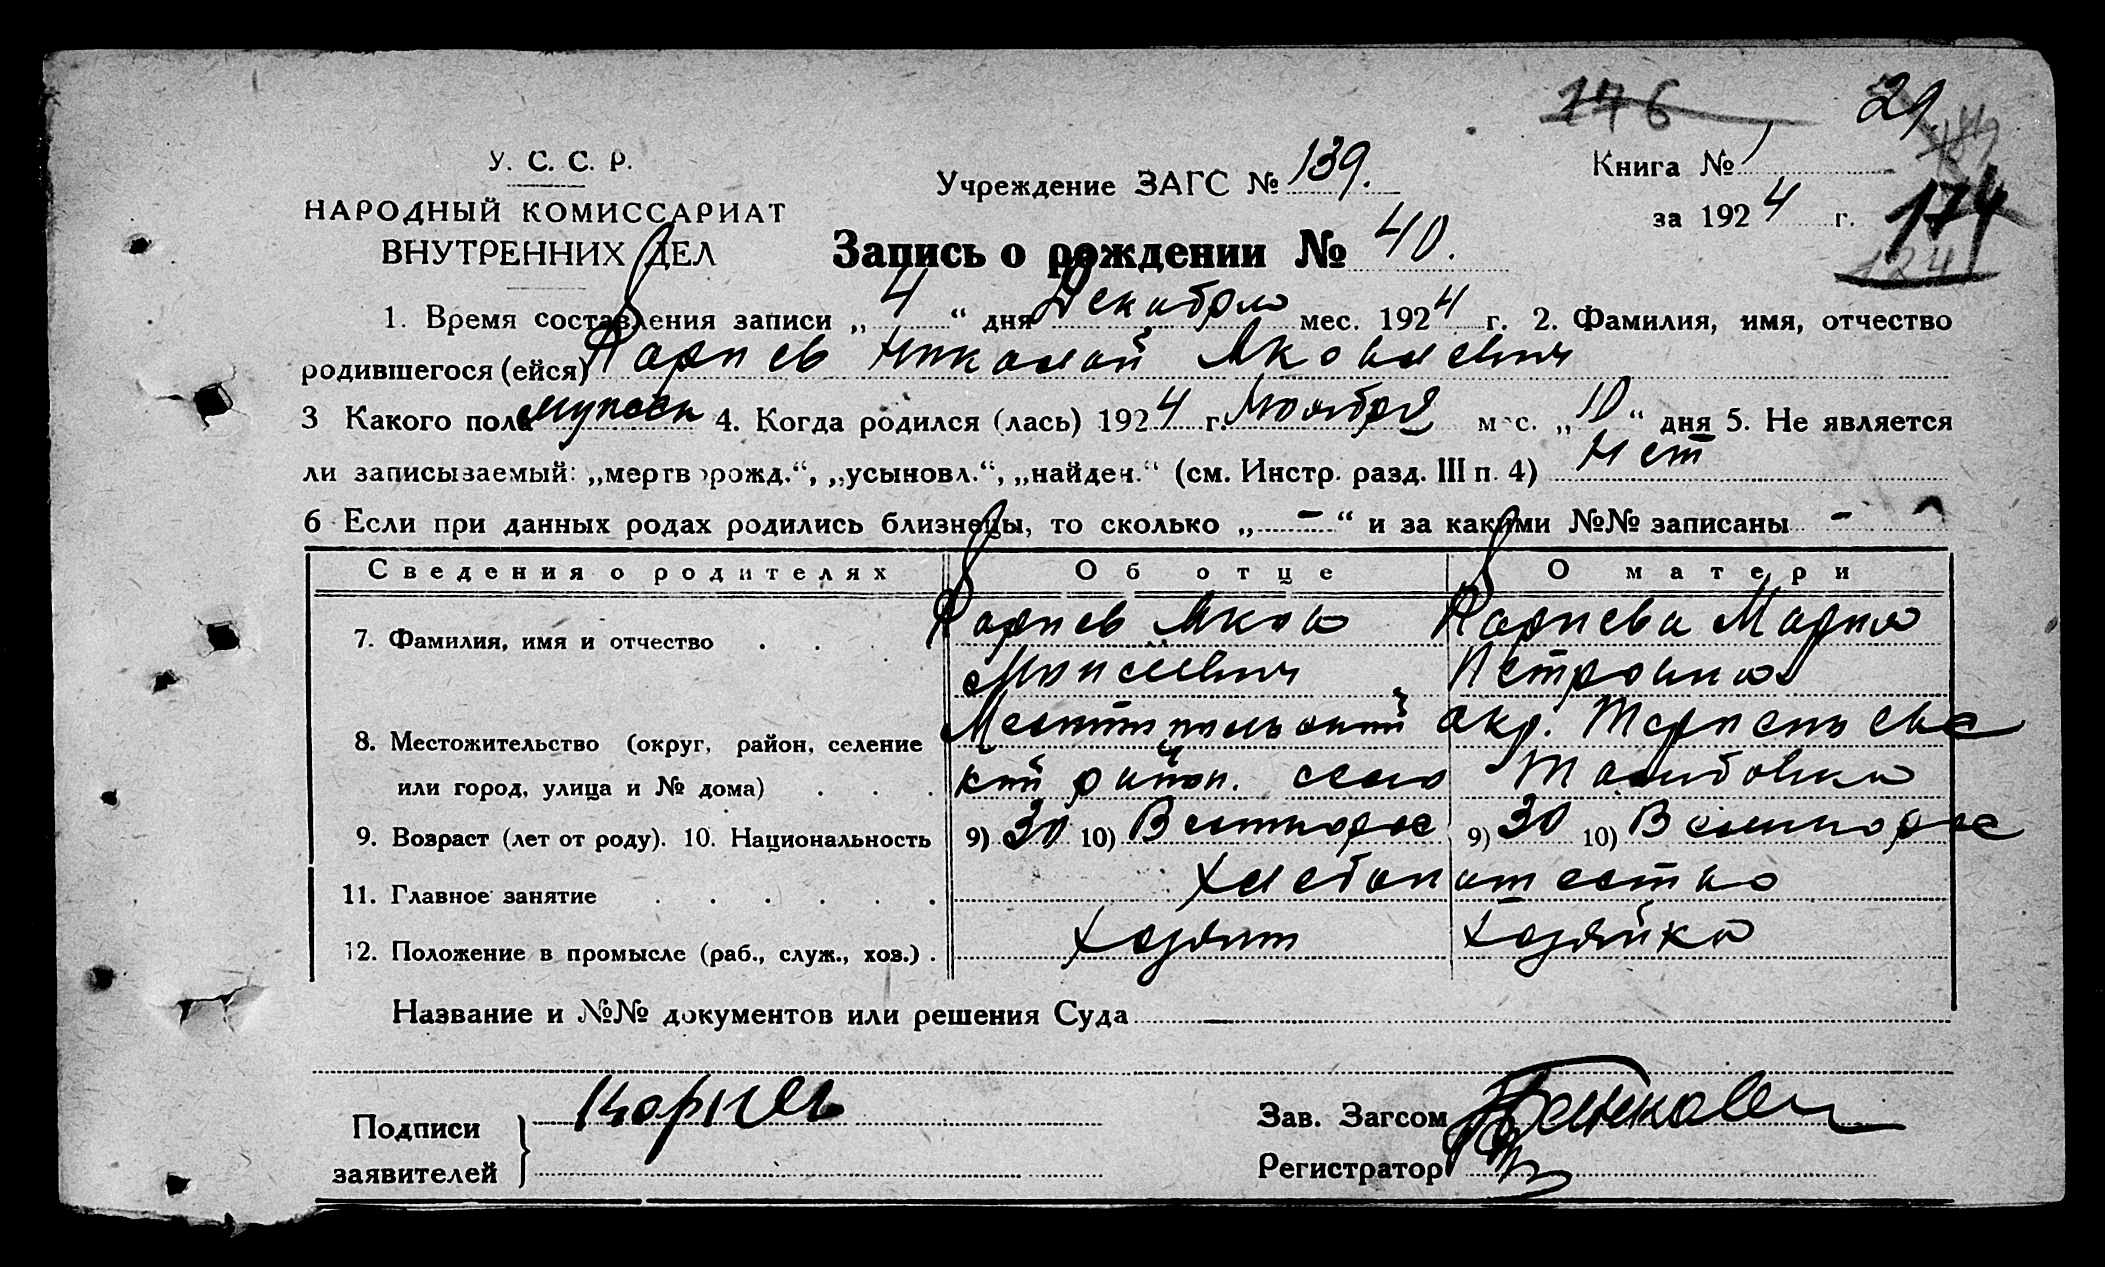 176 29
У. С. С. Р.
НАРОДНЫЙ КОМИССАРИАТ
ВНУТРЕННИХ ДЕЛ
Учреждение ЗАГС № 139.
Книга № 1
за 1924 г.
174
124
Запись о рождении № 40.
1. Время составления записи „4“ дня Декабря мес. 1924 г. 2. Фамилия, имя, отчество
родившегося (ейся) Карнев Николай Яковлевич
3 Какого пола мужск 4. Когда родился (лась) 1924 г. Ноября мес. „10“ дня 5. Не является
ли записываемый: „мертворожд.“, „усыновл.“, „найден.“ (см. Инстр. разд. III п. 4) Нет
6 Если при данных родах родились близнецы, то сколько „-“ и за какими №№ записаны -
Сведения о родителях Об отце О матери
7. Фамилия, имя и отчество Карнев Яков Карнева Мария
Моисеевич Петровна
8. Местожительство (округ, район, селение Мелитопольский окр. Терпеньевс
или город, улица и № дома) кий район. село Тамбовка
9. Возраст (лет от роду). 10. Национальность 9) 30 10) Великорос 9) 30 10) Великорос
11. Главное занятие Хлебопашество
12. Положение в промысле (раб., служ., хоз.) Хозяин Хозяйка
Название и №№ документов или решения Суда —
Подписи
заявителей
Зав. Загсом
Регистратор